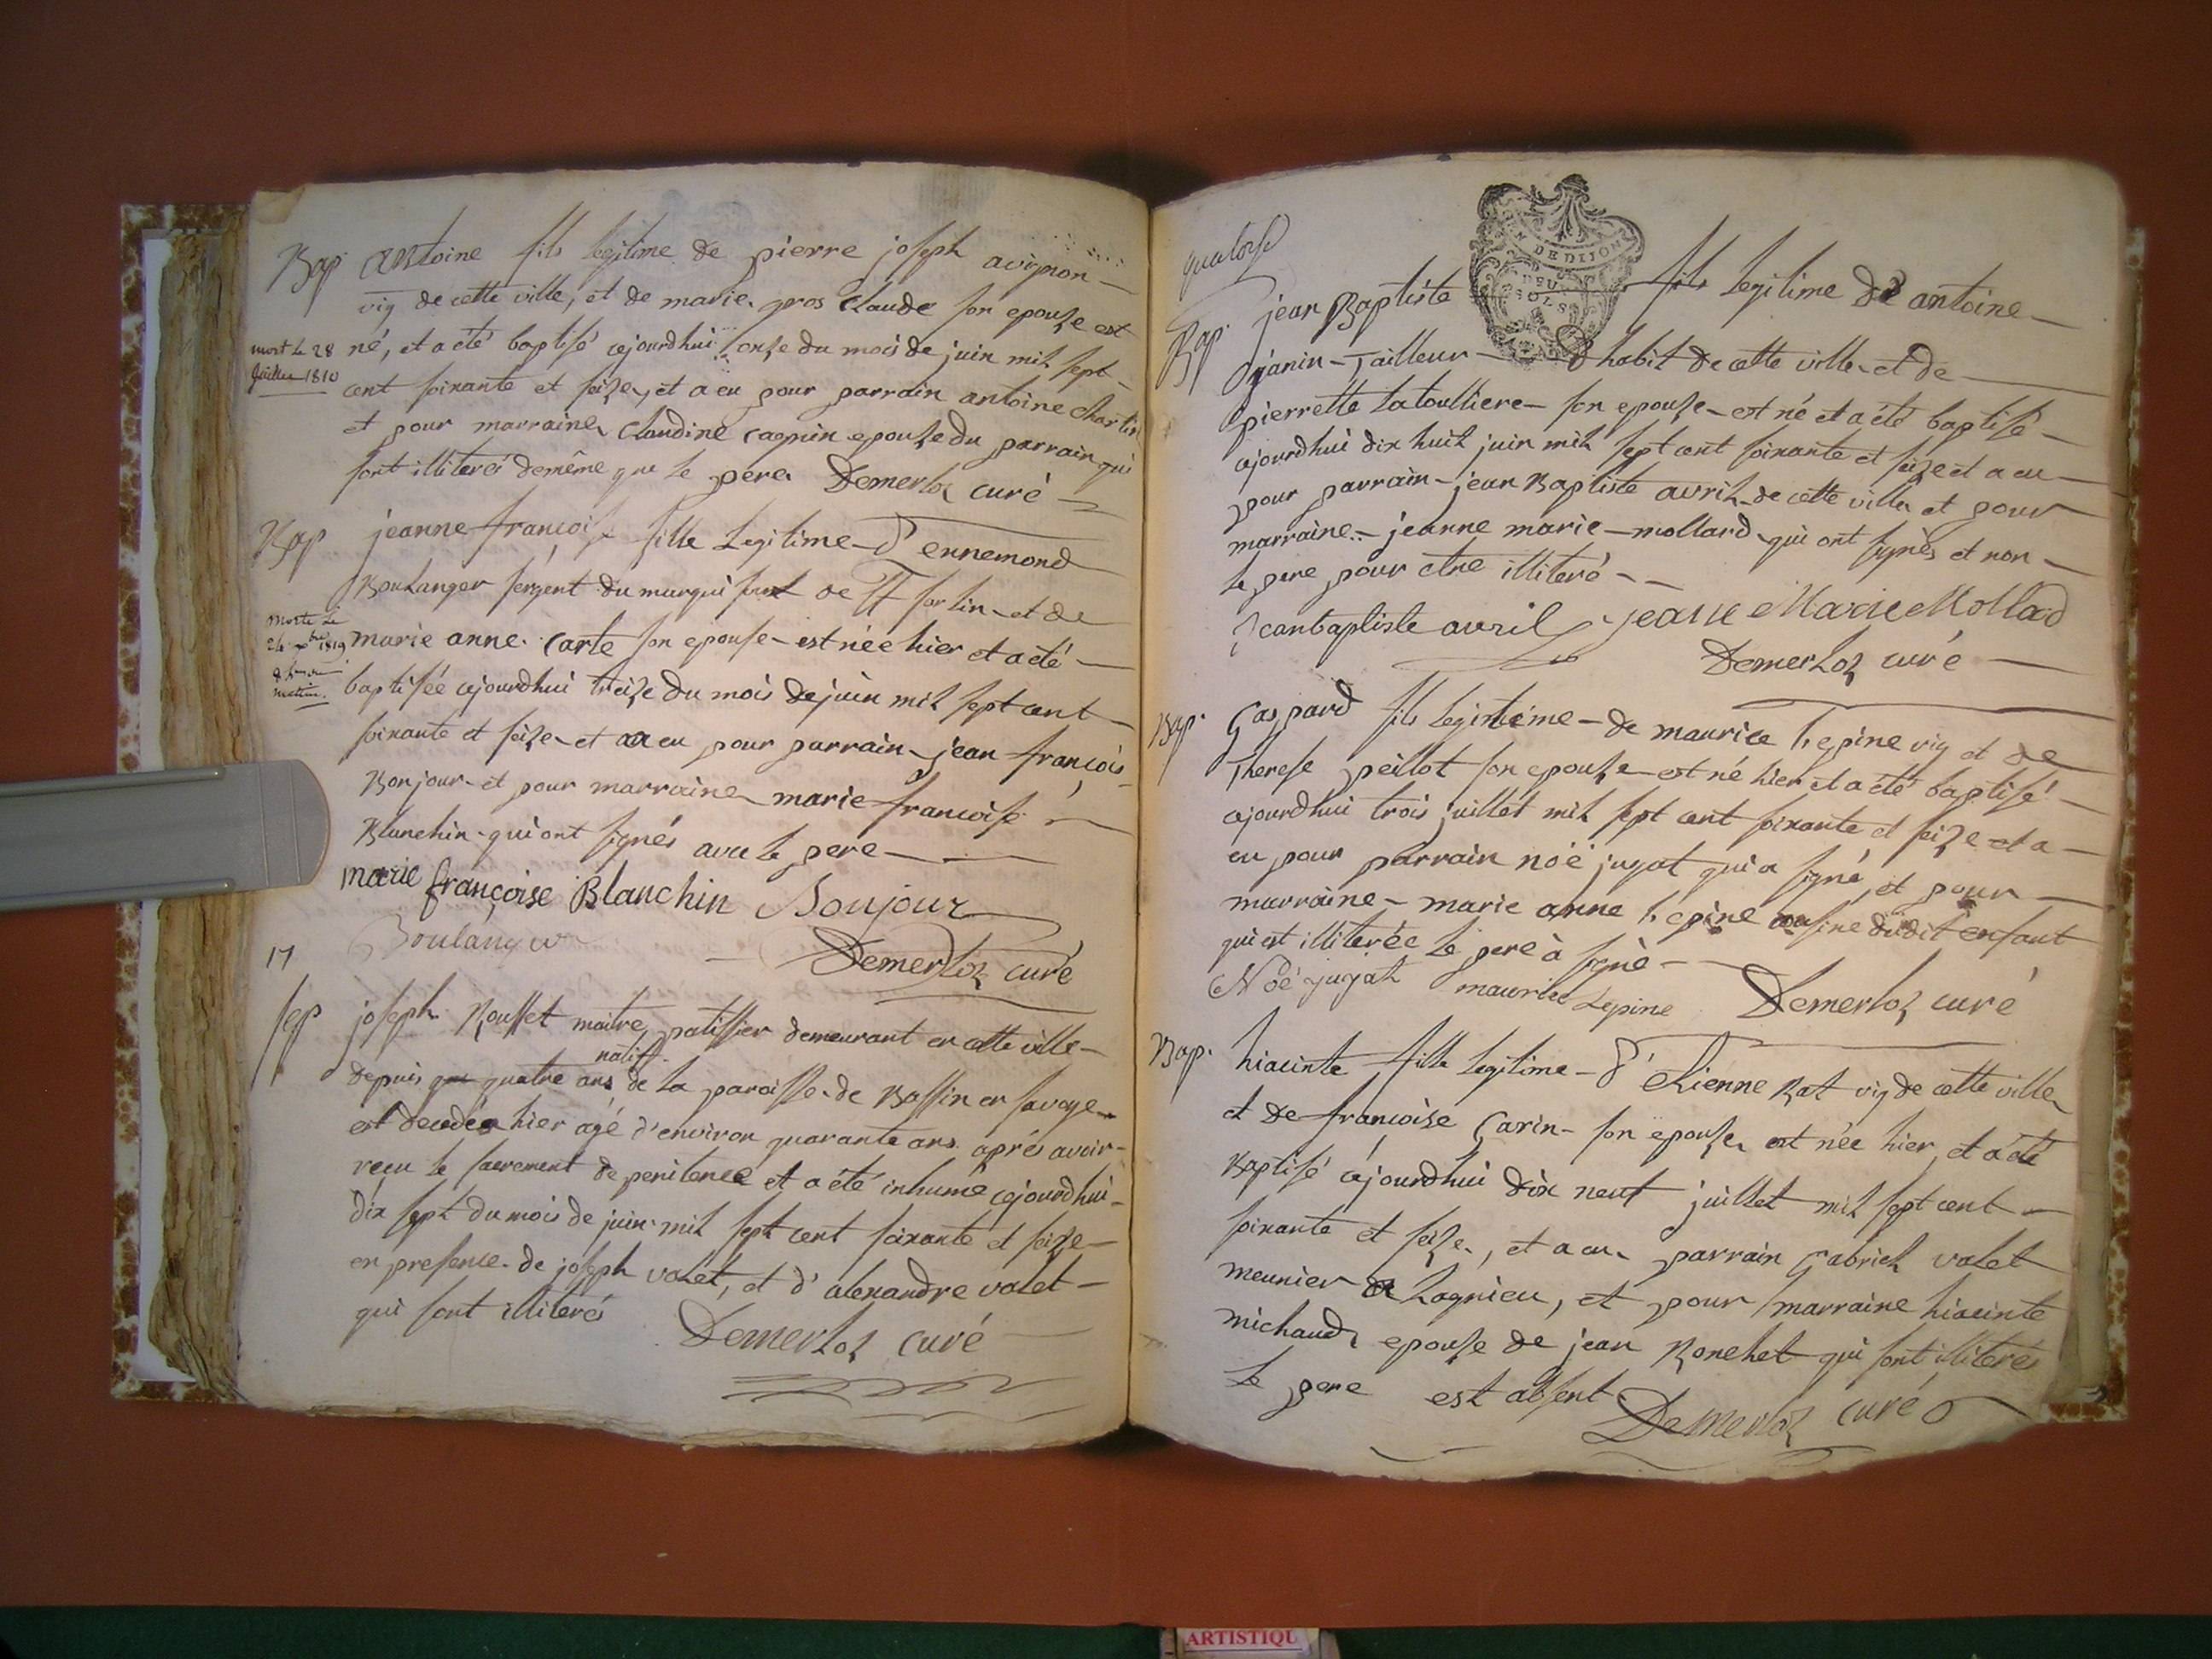 Bap. antoine fils legitime de pierre joseph avignon
vig de cette ville, et de marie gros claude son epouse est
mort le 28
Juillet 1810
né, et a été baptisé cejourdhui onze du mois de juin mil sept
cent soixante et seize, et a eu pour parrain antoine chartin
et pour marraine claudine cagnin epouse du parrain qui
sont illiterés demême que le pere Demerloz curé
Bap jeanne francoise fille legitime d'ennemond
Boulanger sergent du marquisat de St sorlin et de
Morte le
24 xbre 1819
matin.
marie anne carte son epouse est née hier et a été
baptisée cejourdhui treize du mois de juin mil sept cent
soixante et seize et a eu pour parrain jean françois
Bonjour et pour marraine marie francoise
Blanchin qui ont signés avec le pere
marie françoise Blanchin Bonjour
Boulanger
Demerloz curé
17
sep joseph Rousset maitre patissier demeurant en cette ville
natif
depuis quatre ans de la paroisse de Bassin en savoye
est decedé hier agé d'environ quarante ans aprés avoir
reçu le sacrement de penitence et a été inhumé cejourdhui
dix sept du mois de juin mil sept cent soixante et seize
en presence de joseph valet, et d'alexandre valet
qui sont illiterés
Demerloz curé
quatorze
DE DIJON
SOLS
Bap. jean Baptiste fils legitime de antoine
janin Tailleur d habit de cette ville et de
pierrette latoulliere son epouse est né et a été baptisé
cejourdhui dix huit juin mil sept cent soixante et seize et a eu
pour parrain jean Baptiste avril de cette ville et pour
marraine jeanne marie mollard qui ont signés et non
le pere pour etre illiteré
Jeanbaptiste avril jeanne Marie Mollad
Demerloz curé
Bap. Gaspard fils legintime de maurice l'epine vig et de
Therese peillot son epouse est né hier et a été baptisé
cejourdhui trois juillet mil sept cent soixante et seize et a
eu pour parrain noé jugat qui a signé, et pour
marraine marie anne l'epine cousine dudit enfant
qui est illiterée le pere à signé
Noé jugat maurice Lepine Demerloz curé
Bap. hiacinte fille legitime d'etienne Rat vig de cette ville
et de francoise Carin son epouse est née hier, et a été
Baptisé cejourdhui dix neuf juillet mil sept cent
soixante et seize, et a eu parrain Gabriel valet
meunier de Lagnieu, et pour marraine hiacinte
michaud epouse de jean Ronchet qui sont illiterés
le pere est absent
Demerloz curé
ARTISTIQU